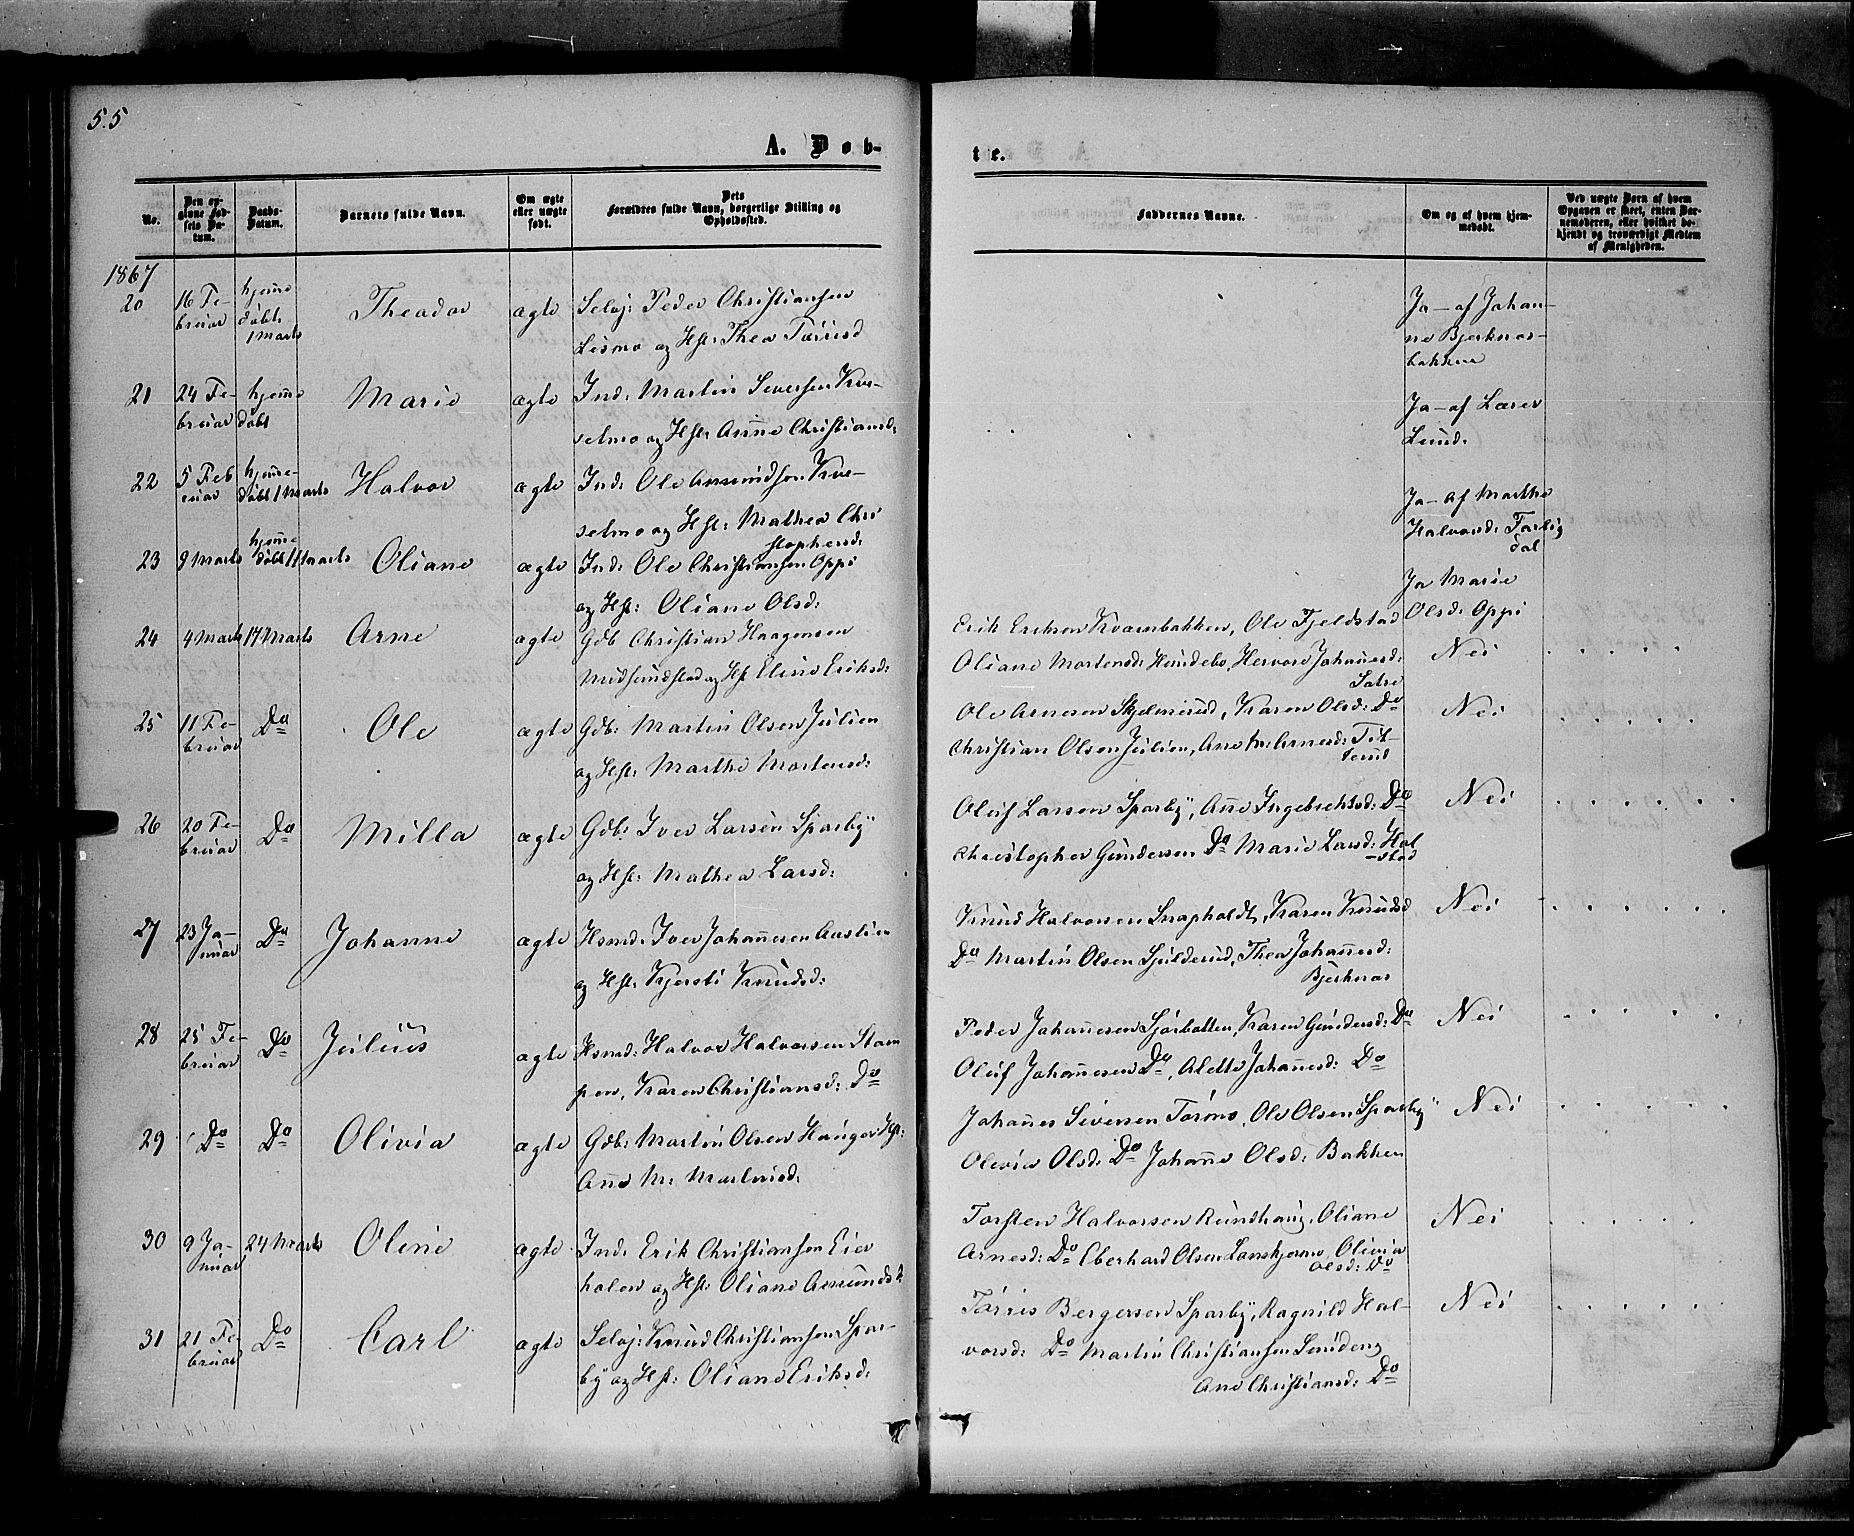 5.5
A. Døb-
te.
No.
Den op-
givne Fød-
sels Da-
tum.
Daabs-
Datum.
Barnets fulde Navn.
Om ægte
eller uægte
født.
Dets
Forældres fulde Navn, borgerlige Stilling og
Opholdssted.
Faddernes Navne.
Om og af hvem hjem-
medøbt.
Ved uægte Børn af hvem
Opgaven er skeet, enten Bar-
nemoderen, eller hvilket be-
kjendt og troværdigt Medlem
af Menigheden.
1867
20
16 Fe-
bruar
hjeme
døbt
1 Marts
Theodor
ægte
Selvj: Peder Christiansen
Lismo og Hst: Thea Tørrisd
Ja - af Johan-
ne Bjerknes-
bakken
21
24 Fe-
bruar
hjeme
døbt
Marie
ægte
Ind: Martin Seversen Kve-
selmo og Hst: Anne Christiansd:
Ja - af Lærer
Lund.
22
5 Feb
ruar
hjeme-
døbt 1 Marts
Halvor
ægte
Ind: Ole Amundsen Kve-
selmo og Hst: Mathea Chri
stophersd:
Ja - af Marthe
Halvorsd: Farlig
dal
23
9 Marts
hjeme
døbt 11 Marts
Oliane
ægte
Ind: Ole Christiansen Oppi
og Hst: Oliane Olsd:
Ja Marie
Olsd: Oppi
24
4 Marts
17 Marts
Arne
ægte
Gdb Christian Haagensen
Midsundstad og Hst Eline Eriksd:
Erik Eriksen Kvernbakken, Ole Fjeldstad
Oliane Mortensd: Hundebo, Hervor Johannesd:
Sætre
Nei
25
11 Fe-
bruar
Do
Ole
ægte
Gdb: Martin Olsen Julien
og Hst: Marthe Mortensd:
Ole Arnesen Skjelmerud, Karen Olsd: Do
Christian Olsen Julien, Ane M: Arnesd: Tit-
terud
Nei
26
20 Fe-
bruar
Do
Milla
ægte
Gdb: Iver Larsen Sparby
og Hst: Mathea Larsd:
Oluf Larsen Sparby, Ane Ingebrektsd: Do
Christopher Gundersen Do Marie Larsd: Hal
-stad
Nei
27
23 Ja-
nuar
Do
Johanne
ægte
Hsmd: Iver Johannesen Austlien
og Hst: Kjersti Knudsd:
Knud Halvorsen Snapholdt, Karen Knudsd
Do Martin Olsen Sjulderud, Thea Johannesd:
Bjerknes
Nei
28
25 Fe-
bruar
Do
Julius
ægte
Hsmd: Halvor Halvorsen Stam
pen, Karen Christiansd: Do
Peder Johannesen Sjørbotten, Karen Gundersd: Do
Oluf Johannesen Do, Alette Johannesd: Do
Nei
29
Do
Do
Olivia
ægte
Gdb: Martin Olsen Hanger Hst:
Ane M: Martinsd:
Johannes Siversen Tørmo, Ole Olsen Sparby
Olivia Olsd: Do Johanne Olsd: Bakken
Nei
30
9 Ja-
nuar
24 Marts
Oline
ægte
Ind: Erik Christiansen Eier
holen og Hst: Oliane Amundsd:
Torsten Halvorsen Rundhaug, Oliane
Arnesd: Do Eberhard Olsen Lanskjernne, Olivia
Olsd: Do
Nei
31
21 Fe-
bruar
Do
Carl
ægte
Selvj: Knud Christiansen Spar-
by og Hst: Oliane Eriksd:
Tørris Bergersen Sparby, Ragnild Hal-
vorsd: Do Martin Christiansen Lunden
Ane Christiansd: Do
Nei